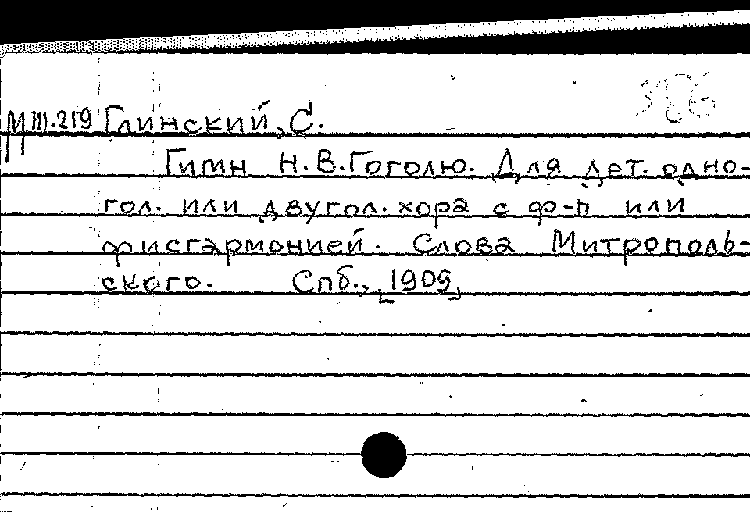 М III.219 Глинский, С.
Гимн Н.В.Гоголю. Для дет. одно-
гол. или двугол. хора с ф-п или
фисгармонией. Слова Митрополь-
ского. Спб., [1909]